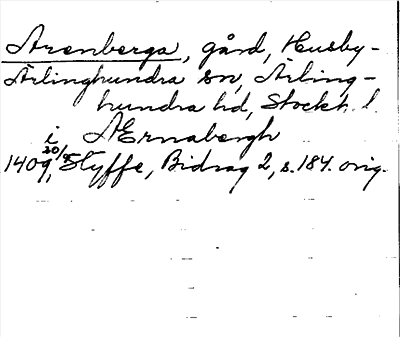 Arenberga, gård, Husby-
Ärlinghundra sn, Ärling-
hundra hd, Stockh. l.
i AErnabergh
1409 30/9, Styffe, Bidrag 2, s. 184. orig.